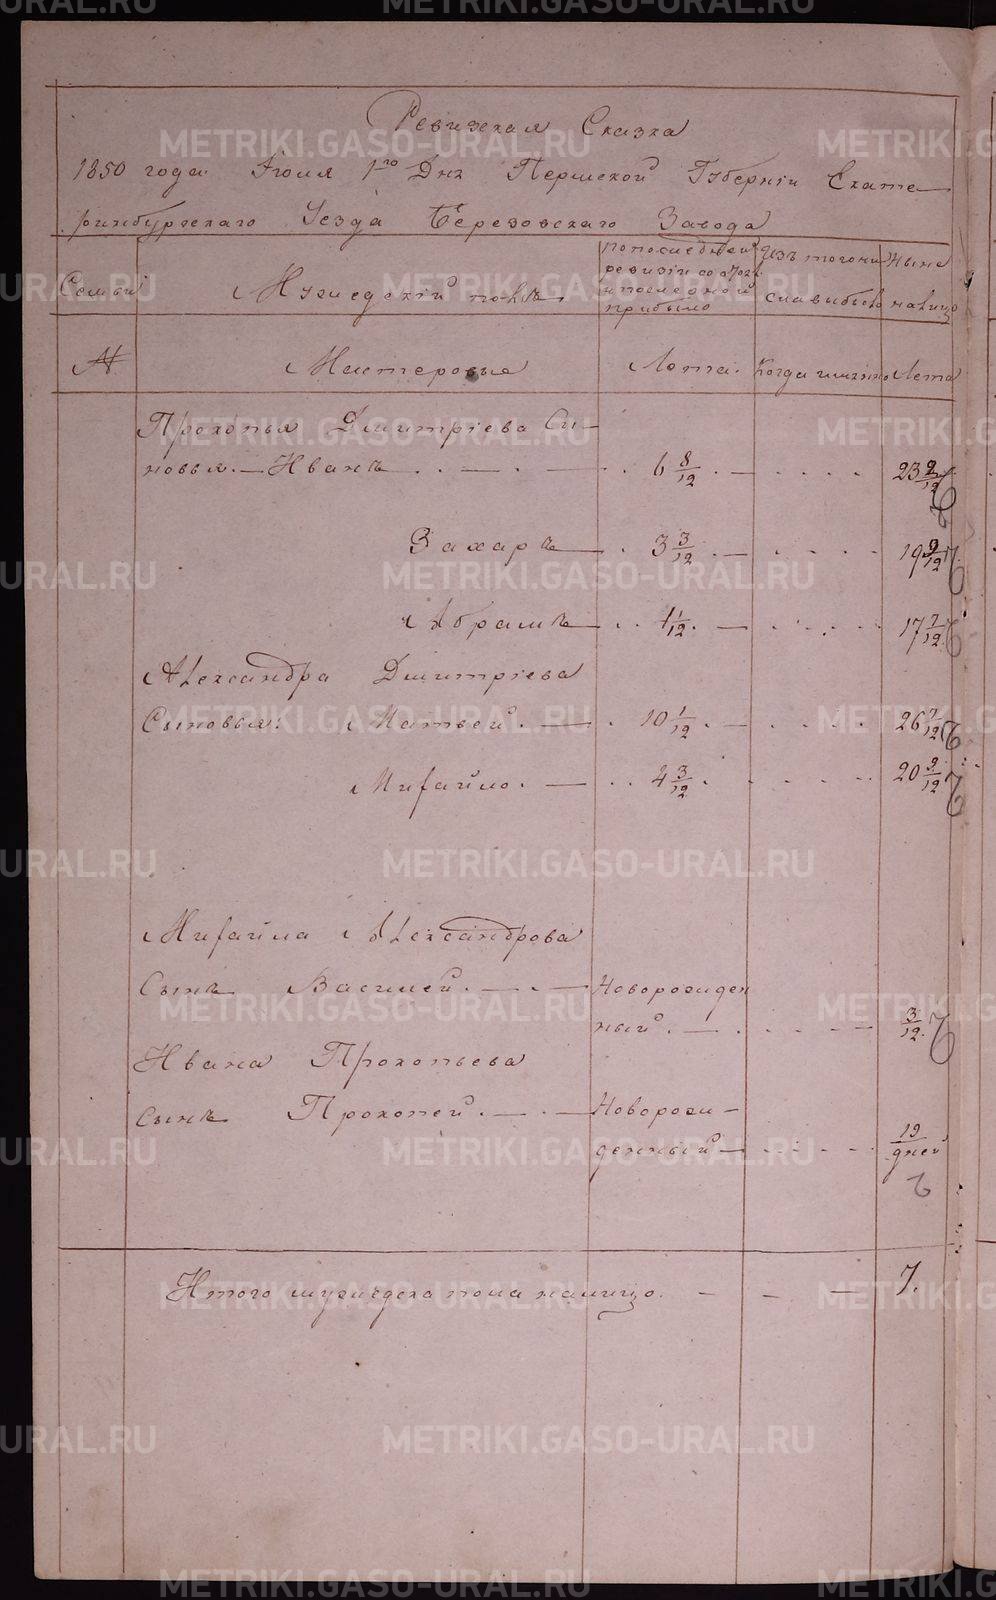 Ревизская Сказка
1850 года Iюля 1го Дня Пермской Губернiи Екате-
ринбургскаго Уезда Березовскаго Завода
Семьи
Мужедскiй полъ.
по последней
ревизiи состоя
и после оной
прибыло
Изъ того чи
сла выбыло
Ныне
на лицо
№
Мастеровые
Лета.
Когда имянно
Лета
Прокопья Дмитрiева Си-
новья. Иванъ 6 8/12 23 2/12
Захаръ 3 3/12 19 9/12
Абрамъ 1 1/12 17 7/12
Александра Дмитрiева
Сыновья: Матвей. 10 1/12 26 7/12
Михайло. 4 3/12 20 9/12
Михайла Александрова
Сынъ Василей. Новорожден
ный. 3/12
Ивана Прокопьева
Сынъ Прокопей. Новорож-
денный 19
дней
Итого мужедска пола налицо. 7.
METRIKI.GASO-URAL.RU